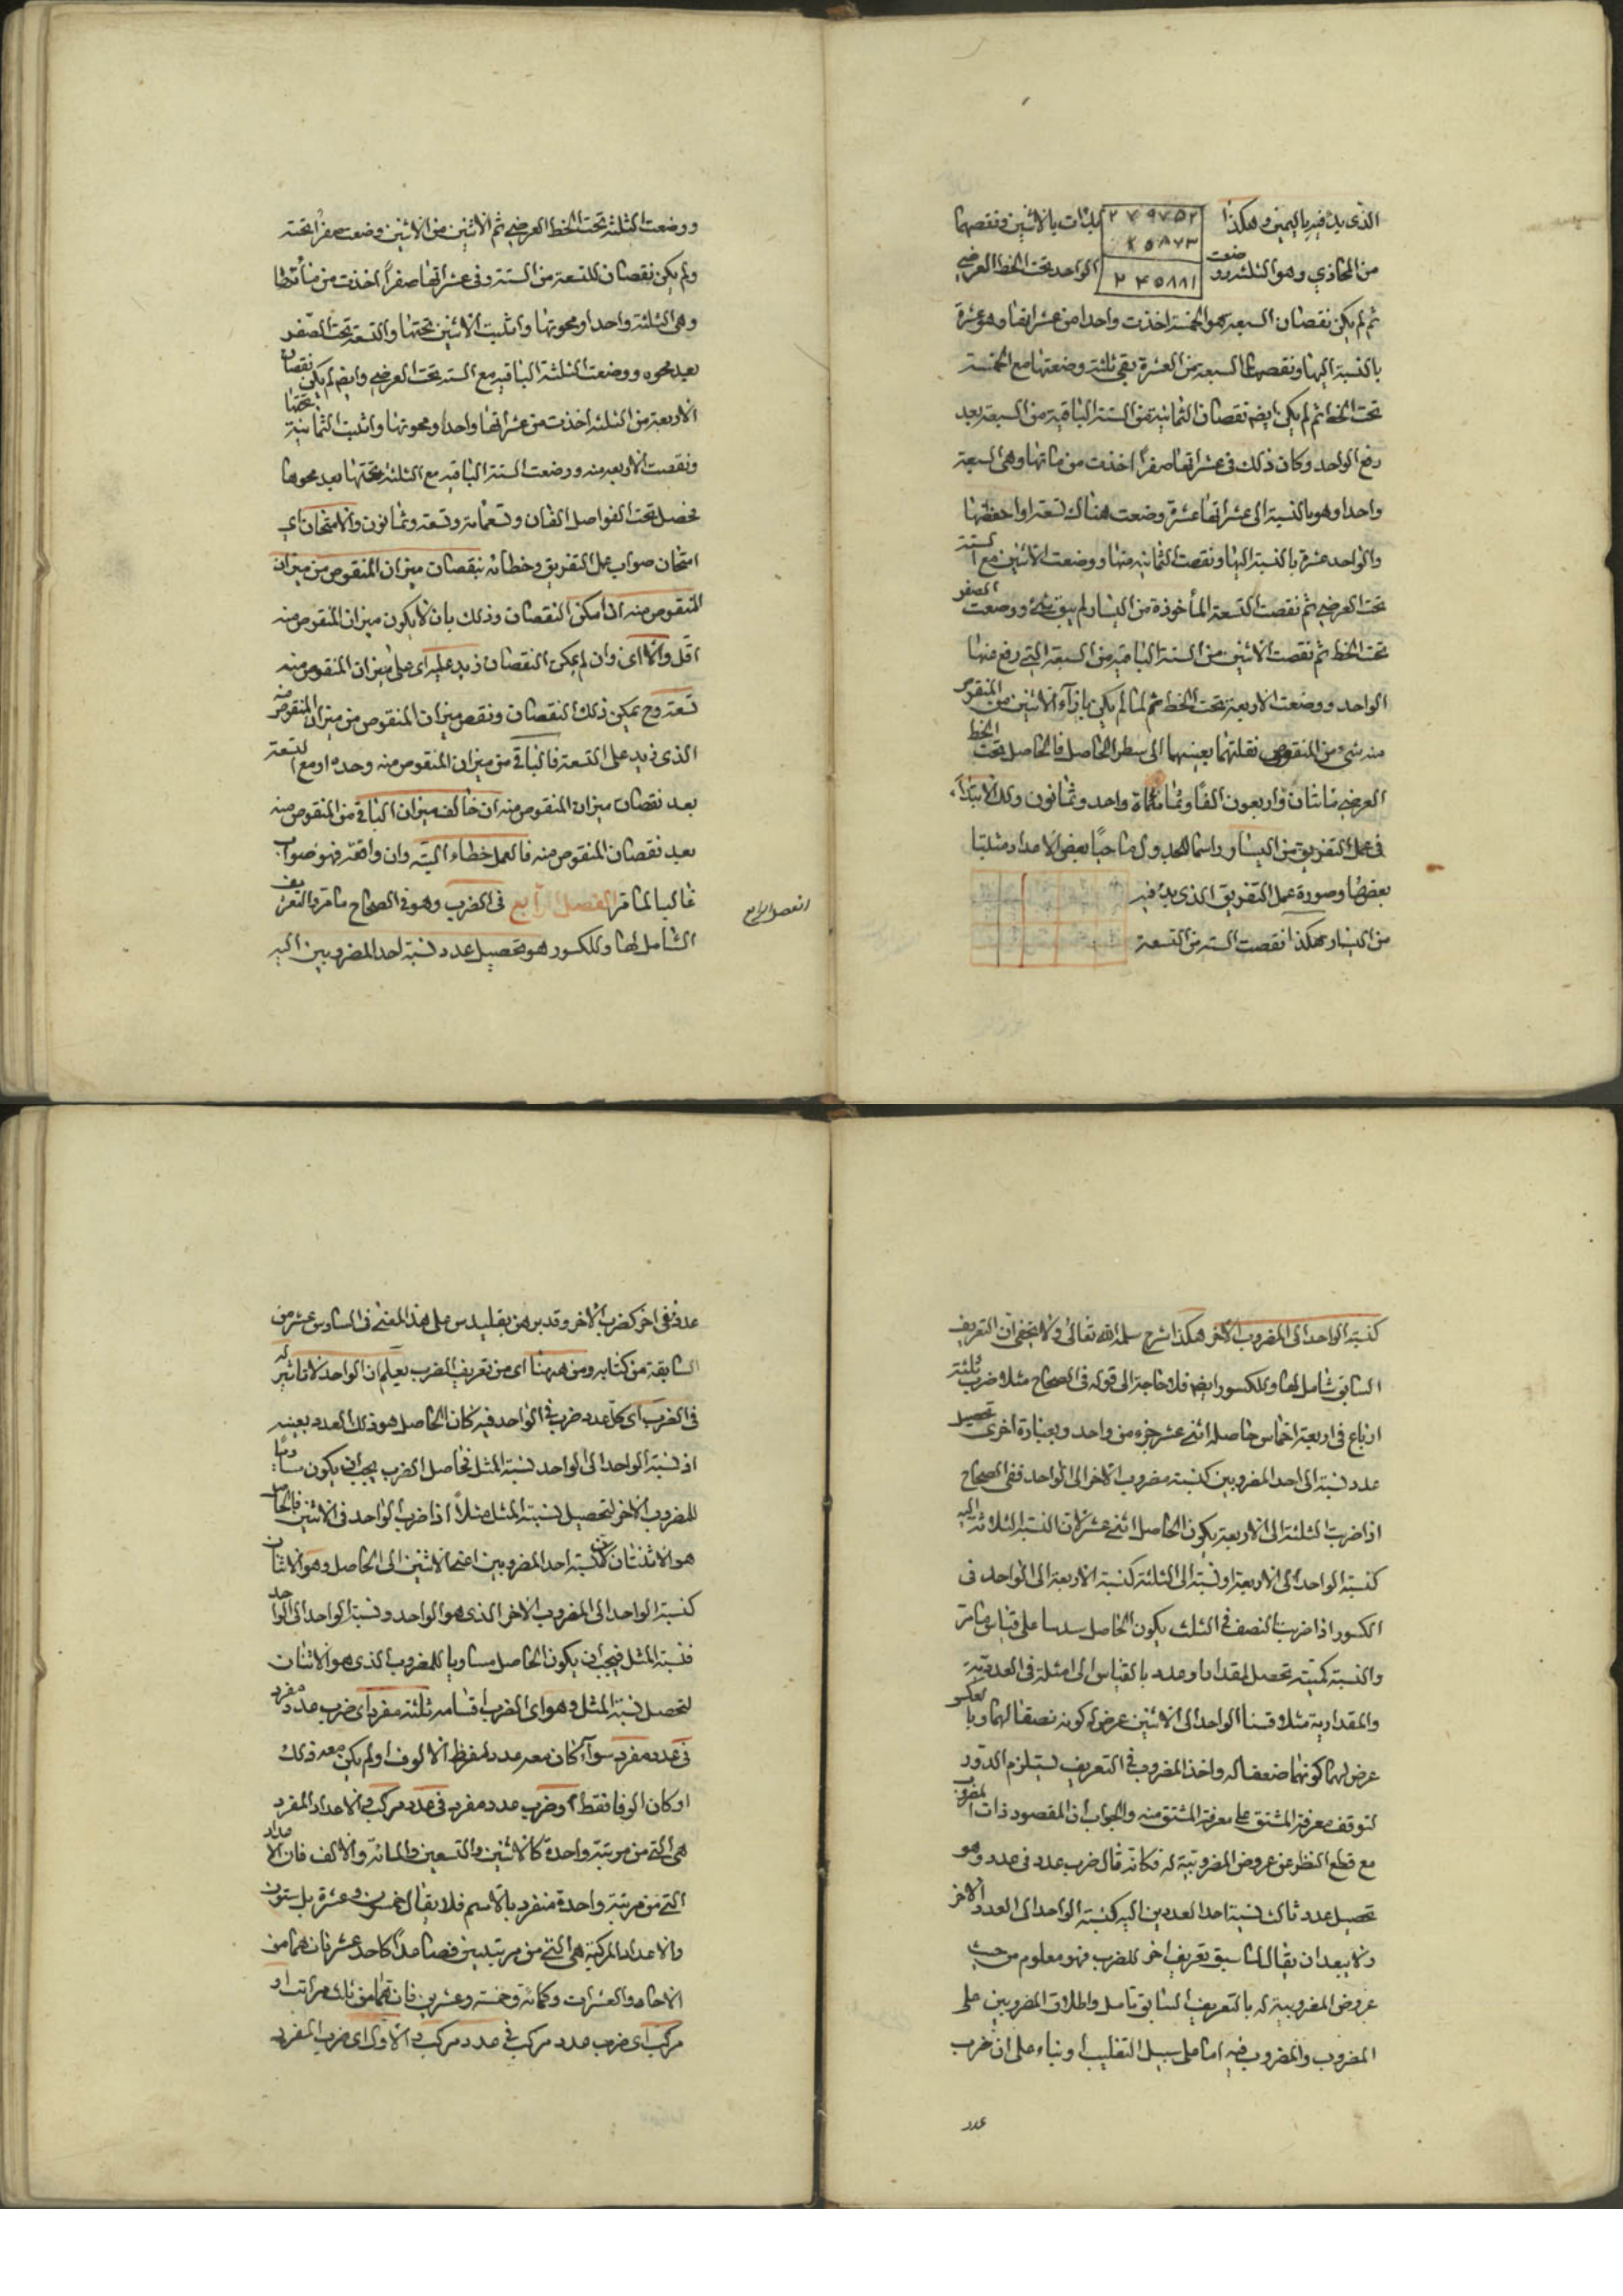 الذى بدئ فيه باليمين وهكذا ٢٤٩٧٥٢ بدات بالاثنين ونقصهما
٠٤٥٨٧٣
من المحاذي وهو الثلثة ووضعت ٢٤٥٨٨١ الواحد تحت الخط العرضي
ثم لم يكن نقصان السبعة من الخمسة اخذت واحدا من عشراتها وهو عشرة
بالنسبة اليها ونقصت السبعة من العشرة بقي ثلثة وضعتها مع الخمسة
تحت الخط ثم لم يكن ايضا نقصان الثمانية من الستة الباقية من السبعة بعد
رفع الواحد وكان ذلك فى عشراتها صفرا اخذت من مئاتها وهى السبعة
واحدا وهو بالنسبة الى عشراتها عشرة وضعت هناك تسعة واحفظتها
والواحد عشرة بالنسبة اليها ونقصت الثمانية منها ووضعت الاثنين مع الستة
تحت العرضي ثم نقصت التسعة المأخوذة من اليسار لم يبق شئ ووضعت الصفر
تحت الخط ثم نقصت الاثنين من الستة الباقية من السبعة التى رفع منها
الواحد ووضعت الاربعة تحت الخط ثم لما لم يكن بازآء الاثنين من المنقوص
منه شئ من المنقوص نقلتهما بعينهما الى سطر الحاصل فالحاصل تحت الخط
العرضي مائتان واربعون الفا وثمانمائة واحد وثمانون ولك الابتدآء
فى عمل التفريق من اليسار راسما للجدول ماحيا بعض الاعداد مثبتا
بعضها وصورة عمل التفريق الذى بدئ فيه
من اليسار هكذا نقصت الستة من التسعة
ووضعت الثلثة تحت الخط العرضي ثم الاثنين من الاثنين وضعت صفرا تحته
ولم يكن نقصان التسعة من الستة وفى عشراتها صفراً اخذت من مئاتها
وهى الثلثة واحدا ومحوتها واثبت الاثنين تحتها والتسعة تحت الصفر
بعيد محوه ووضعت الثلثة الباقية مع الستة تحت العرضي وايضا لم يكن نقصان
الاربعة من الثلثة اخذت من عشراتها واحدا ومحوتها واثبت الثمانية تحتها
ونقصت الاربعة منه ووضعت الستة الباقية مع الثلثة تحتها بعد محوها
فحصل تحت الفواصل الفان وتسعمائة وتسعة وثمانون والامتحان اى
امتحان صواب عمل التفريق وخطائه بنقصان ميزان المنقوص من ميزان
المنقوص منه ان امكن النقصان وذلك بان لا يكون ميزان المنقوص منه
اقل والا اى وان لم يمكن النقصان زيد عليه اى على ميزان المنقوص منه
تسعة وح يمكن ذلك النقصان ونقص ميزان المنقوص من ميزان المنقوص منه
الذى زيد على التسعة فالباقى من ميزان المنقوص منه وحده او مع التسعة
بعد نقصان ميزان المنقوص منه ان خالف ميزان الباقى من المنقوص منه
بعد نقصان المنقوص منه فالعمل خطاء البتة وان وافقه فهو صواب
غالبا لما مر الفصل الرابع فى الضرب وهو فى الصحاح ما مر والتعريف
الشامل لها وللكسور هو تحصيل عدد نسبة احد المضروبين اليه
الفصل الرابع
كنسبة الواحد الى المضروب الآخر هكذا شرح سلمه الله تعالى ولا يخفى ان التعريف
السابق شامل لها وللكسور ايضا فلا حاجة الى قوله فى الصحاح مثلا ضرب ثلثة
ارباع فى اربعة اخماس حاصله اثنى عشر جزء من واحد وبعبارة اخرى تحصيل
عدد نسبة الى احد المضروبين كنسبة مضروب الاخر الى الواحد ففى الصحاح
اذا ضربت الثلثة الى الاربعة يكون الحاصل اثنى عشر لان النسبة الثلاثة اليه
كنسبة الواحد الى الاربعة او نسبته الى الثلثة كنسبة الاربعة الى الواحد فى
الكسور اذا ضربت النصف فى الثلث يكون الحاصل سدسا على قياس ما مر
والنسبة كمية تحصل لمقدار او عدد بالقياس الى امثلة فى العددية
والمقدارية مثلا قسنا الواحد الى الاثنين عرض له كونه نصفا لهما وبالعكس
عرض لهما كونهما ضعفا له واخذ المضروب فى التعريف يستلزم الدور
لتوقف معرفة المشتق على معرفة المشتق منه والجواب ان المقصود ذات المضروب
مع قطع النظر عن عروض المضروبية له فكانه قال ضرب عدد فى عدد وهو
تحصيل عدد ثالث نسبة احد العددين اليه كنسبة الواحد الى العدد الاخر
ولا يبعد ان يقال لما سبق تعريف اخر للضرب فهو معلوم من حيث
عروض المضروبية له بالتعريف السابق تامل واطلاق المضروبين على
المضروب والمضروب فيه اما على سبيل التغليب او بناء على ان ضرب
عدد
عدد فى اخر كضرب الاخر وقد برهن بقليدس على هذا المعنى فى السادس عشر من
السابقة من كتابه ومن ههنا اى من تعريف الضرب يعلم ان الواحد لا تاثير له
فى الضرب اى كل عدد ضرب فى الواحد فيه كان الحاصل هو ذلك العدد بعينه
اذ نسبة الواحد الى الواحد نسبة المثل فحاصل الضرب يجب ان يكون مساويا
للمضروب الاخر لتحصيل نسبة المثل مثلاً اذا ضرب الواحد فى الاثنين فالحاصل
هو الاثنان لان نسبة احد المضروبين اعنى الاثنين الى الحاصل وهو الاثنان
كنسبة الواحد الى المضروب الاخر الذى هو الواحد ونسبة الواحد الى الواحد
نسبة المثل فيجب ان يكون الحاصل مساويا للمضروب الذى هو الاثنان
لتحصل نسبة المثل وهو اى الضرب اقسامه ثلثة مفرد اى ضرب عدد مفرد
فى عدد مفرد سوآء كان معه عدد لفظ الالوف او لم يكن معه ذلك
او كان الوفا فقط او ضرب عدد مفرد فى عدد مركب والاعداد المفرد
هى التى من مرتبة واحدة كالاثنين والتسعين والمائة والالف فان الاعداد
التى من مرتبة واحدة منفرد بالاسم فلا يقال خمسون وعشرة بل ستون
والاعداد المركبة هى التى من مرتبتين فصاعداً كاحد عشر فانهما من
الاحاد والعشرات وكمائة وخمسة وعشرين فانهما من ثلث مراتب او
مركب اى ضرب عدد مركب فى عدد مركب والاول اى ضرب المفرد